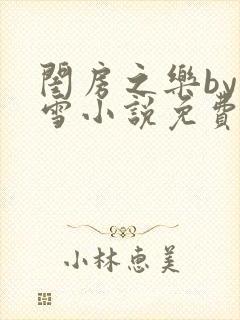 閨房之樂by
雪小說免費
小林惠美